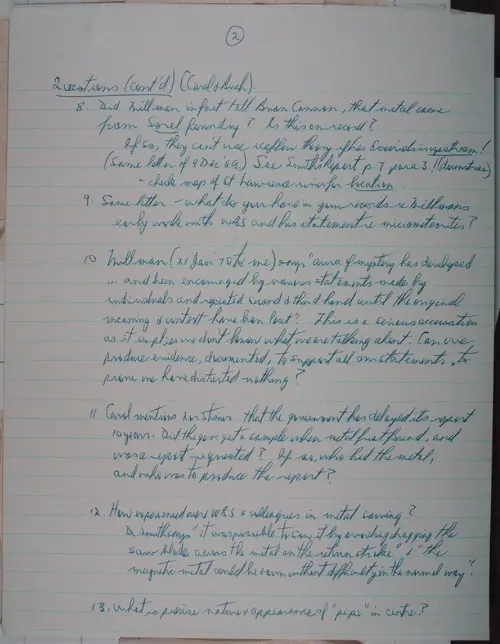 2
Questions (cont'd) (Carol & Rich).
8. Did Millman in fact tell Brian Cannon, that metal came
from Sorel foundry? Is this on record?
If so, they can't use iceflow theory after Ecowids is upstream!
(Same letter of 4 Dec '69) See Smith's Report p. 7 para 3! (downstream)
- check map of St Lawrence river for location.
9. Same letter - what do you have in your records re Millman's
early work with WBS and his statement re micrometeorites?
10. Millman (21 Jan '70 to me) says "aura of mystery has developed
... and been encouraged by various statements made by
individuals and repeated second & third hand until the original
meaning & context have been lost". This is a serious accusation
as it implies we don't know what we are talking about. Can we
produce evidence, documented, to support all our statements, to
prove we have distorted nothing?
11. Carol mentions times that the government has delayed its report
10 years. Did the gov. get a sample when metal first found, and
was a report requested? If so, who had the metal,
and who was to produce the report?
12. How experienced were WBS & colleagues in metal sawing?
Dr. Smith says "it was possible to saw it by avoiding dragging the
saw blade across the metal on the return stroke" & "the
magnetic metal could be sawn without difficulty in the normal way".
13. What is precise nature & appearance of "pipe" in centre?